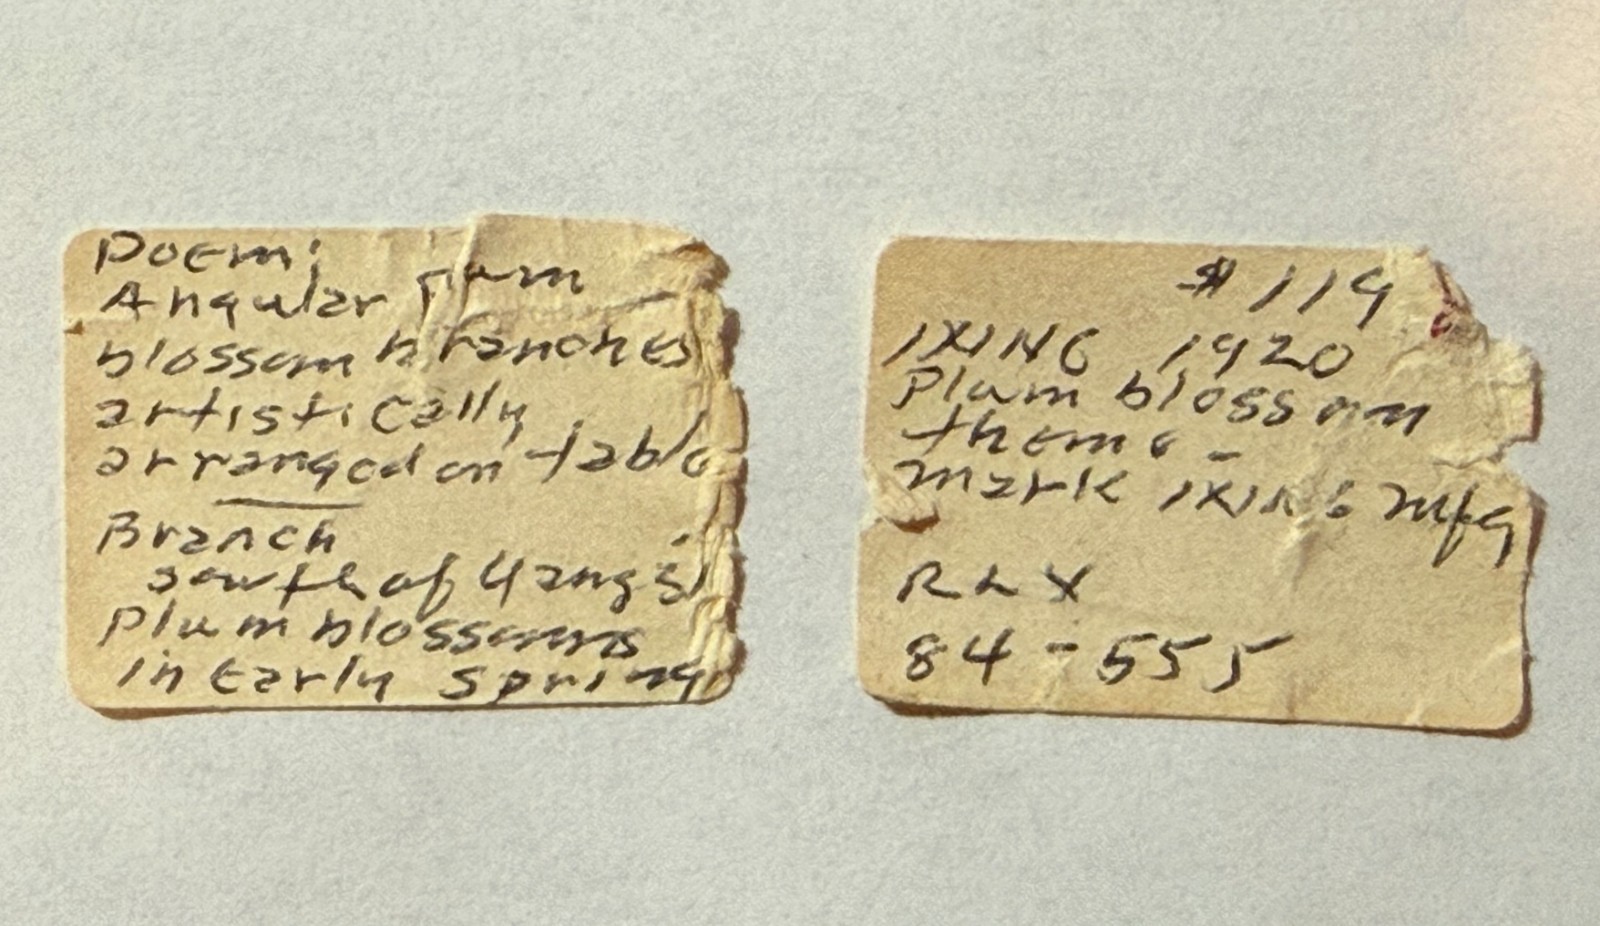 Poem:
Angular plum
blossom branches
artistically
arranged on table
Branch
south of Yangs
Plum blossoms
in Early Spring
$119
IXING 1920
Plum blossom
theme -
mark IXING Mfg
RLX
84-555